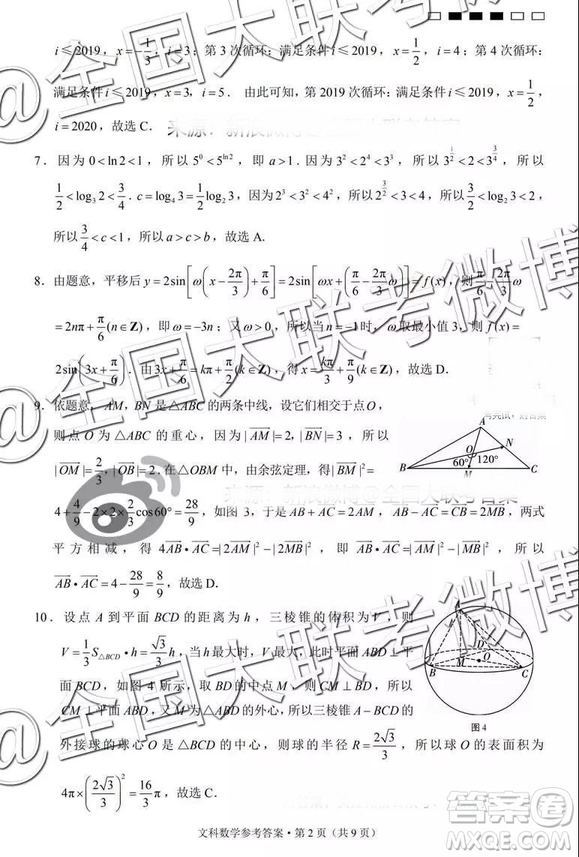 i≤2019，x=-1/3，i=3；第 3 次循环：满足条件 i≤2019，x=1/2，i=4；第 4 次循环：
满足条件 i≤2019，x=3，i=5．由此可知，第 2019 次循环：满足条件 i≤2019，x=1/2，
i=2020，故选 C．
7．因为 0<ln2<1，所以 5^0<5^(ln2)，即 a>1．因为 3^2<2^4<3^3，所以 3^(1/2)<2<3^(3/4)，所以
1/2<log_3 2<3/4．c=log_4 3=1/2 log_2 3，因为 2^3<3^2<4^2，所以 2^(3/2)<3<4，所以 3/2<log_2 3<2，
所以 3/4<c<1，所以 a>c>b，故选 A．
8．由题意，平移后 y=2sin[ω(x-2π/3)+π/6]=2sin[ωx+(π/6-2π/3 ω)]=f(x)，则 π/6-2π/3 ω
=2nπ+π/6(n∈Z)，即 ω=-3n；又 ω>0，所以当 n=-1 时，ω 取最小值 3，则 f(x)=
2sin(3x+π/6)．由 3x+π/6=kπ+π/2(k∈Z)，得 x=kπ/3+π/9(k∈Z)，故选 D．
9．依题意，AM，BN 是△ABC 的两条中线，设它们相交于点 O，
则点 O 为△ABC 的重心，因为|AM|=2，|BN|=3，所以
|OM|=2/3，|OB|=2．在△OBM 中，由余弦定理，得|BM|²=
4+4/9-2×2×2/3 cos60°=28/9，如图 3，于是 AB+AC=2AM，AB-AC=CB=2MB，两式
平方相减，得 4AB·AC=|2AM|²-|2MB|²，即 AB·AC=|AM|²-|MB|²，所以
AB·AC=4-28/9=8/9，故选 D．
A
N
60°
120°
B
M
C
10．设点 A 到平面 BCD 的距离为 h，三棱锥的体积为 V，则
V=1/3 S△BCD·h=√3/3 h，当 h 最大时，V 最大，此时平面 ABD⊥平
面 BCD，如图 4 所示，取 BD 的中点 M，则 CM⊥BD，所以
CM⊥平面 ABD，又 M 为△ABD 的外心，所以三棱锥 A-BCD 的
外接球的球心 O 是△BCD 的中心，则球的半径 R=2√3/3，所以球 O 的表面积为
4π×(2√3/3)²=16/3 π，故选 C．
A
B
M
O
D
C
图 4
文科数学参考答案·第 2 页（共 9 页）
@全国大联考微博
答案圈
MXQE.COM